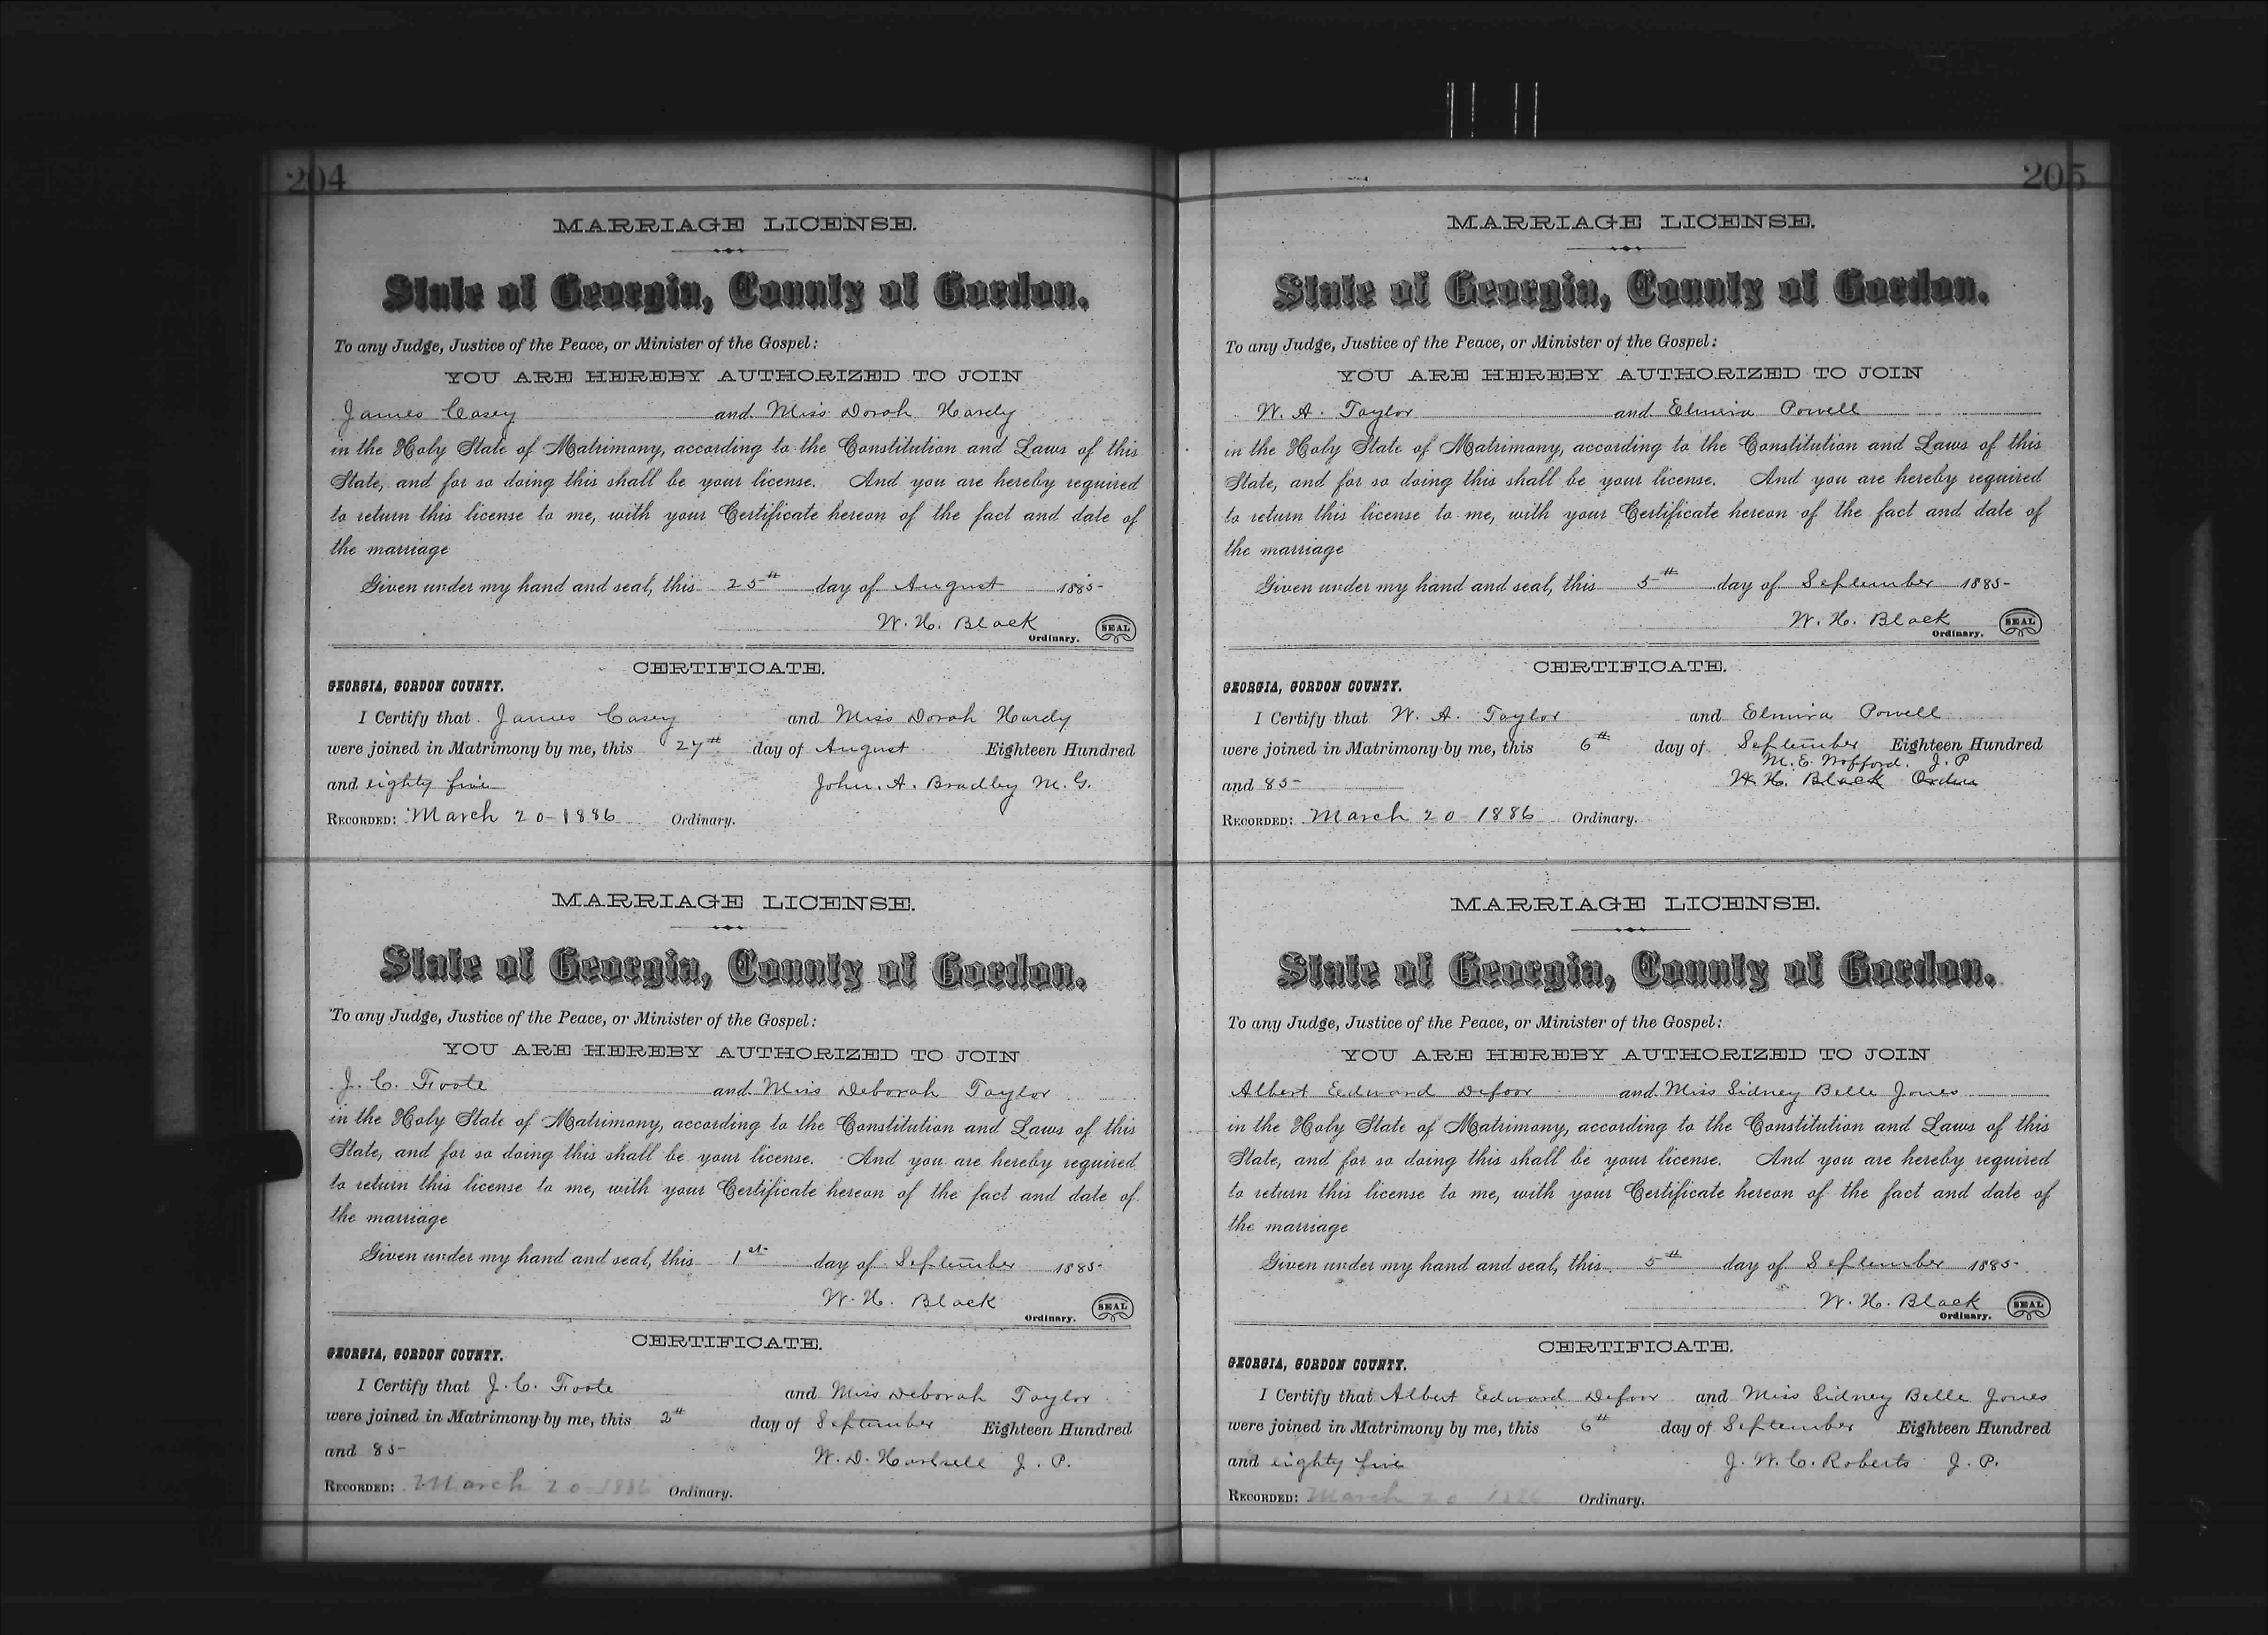 204
MARRIAGE LICENSE.
State of Georgia, County of Gordon.
To any Judge, Justice of the Peace, or Minister of the Gospel:
YOU ARE HEREBY AUTHORIZED TO JOIN
James Casey and Miss Dorah Hardy
in the Holy State of Matrimony, according to the Constitution and Laws of this
State, and for so doing this shall be your license. And you are hereby required
to return this license to me, with your Certificate hereon of the fact and date of
the marriage
Given under my hand and seal, this 25th day of August 1885
W. H. Black
Ordinary. SEAL
CERTIFICATE.
GEORGIA, GORDON COUNTY.
I Certify that James Casey and Miss Dorah Hardy
were joined in Matrimony by me, this 27th day of August Eighteen Hundred
and eighty five John. A. Bradley M. G.
RECORDED: March 20-1886 Ordinary.
MARRIAGE LICENSE.
State of Georgia, County of Gordon.
To any Judge, Justice of the Peace, or Minister of the Gospel:
YOU ARE HEREBY AUTHORIZED TO JOIN
J. C. Foote and Miss Deborah Taylor
in the Holy State of Matrimony, according to the Constitution and Laws of this
State, and for so doing this shall be your license. And you are hereby required
to return this license to me, with your Certificate hereon of the fact and date of
the marriage
Given under my hand and seal, this 1st day of September 1885
W. H. Black
Ordinary. SEAL
CERTIFICATE.
GEORGIA, GORDON COUNTY.
I Certify that J. C. Foote and Miss Deborah Taylor
were joined in Matrimony by me, this 2th day of September Eighteen Hundred
and 85 W. D. Hartsell J. P.
RECORDED: March 20-1886 Ordinary.
205
MARRIAGE LICENSE.
State of Georgia, County of Gordon.
To any Judge, Justice of the Peace, or Minister of the Gospel:
YOU ARE HEREBY AUTHORIZED TO JOIN
W. A. Taylor and Elmira Powell
in the Holy State of Matrimony, according to the Constitution and Laws of this
State, and for so doing this shall be your license. And you are hereby required
to return this license to me, with your Certificate hereon of the fact and date of
the marriage
Given under my hand and seal, this 5th day of September 1885
W. H. Black
Ordinary. SEAL
CERTIFICATE.
GEORGIA, GORDON COUNTY.
I Certify that W. A. Taylor and Elmira Powell
were joined in Matrimony by me, this 6th day of September Eighteen Hundred
M. E. Wofford. J. P
and 85 W. H. Black
RECORDED: March 20 1886 Ordinary.
MARRIAGE LICENSE.
State of Georgia, County of Gordon.
To any Judge, Justice of the Peace, or Minister of the Gospel:
YOU ARE HEREBY AUTHORIZED TO JOIN
Albert Edward Defoor and Miss Sidney Belle Jones
in the Holy State of Matrimony, according to the Constitution and Laws of this
State, and for so doing this shall be your license. And you are hereby required
to return this license to me, with your Certificate hereon of the fact and date of
the marriage
Given under my hand and seal, this 5th day of September 1885
W. H. Black
Ordinary. SEAL
CERTIFICATE.
GEORGIA, GORDON COUNTY.
I Certify that Albert Edward Defoor and Miss Sidney Belle Jones
were joined in Matrimony by me, this 6th day of September Eighteen Hundred
and eighty five J. W. C. Roberts J. P.
RECORDED: March 20 1886 Ordinary.